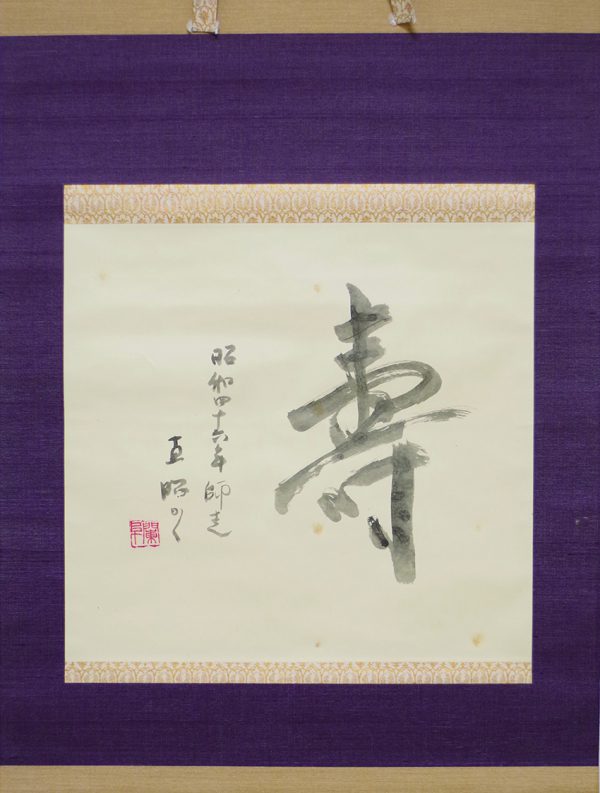 壽
昭和四十六年師走
直昭かく